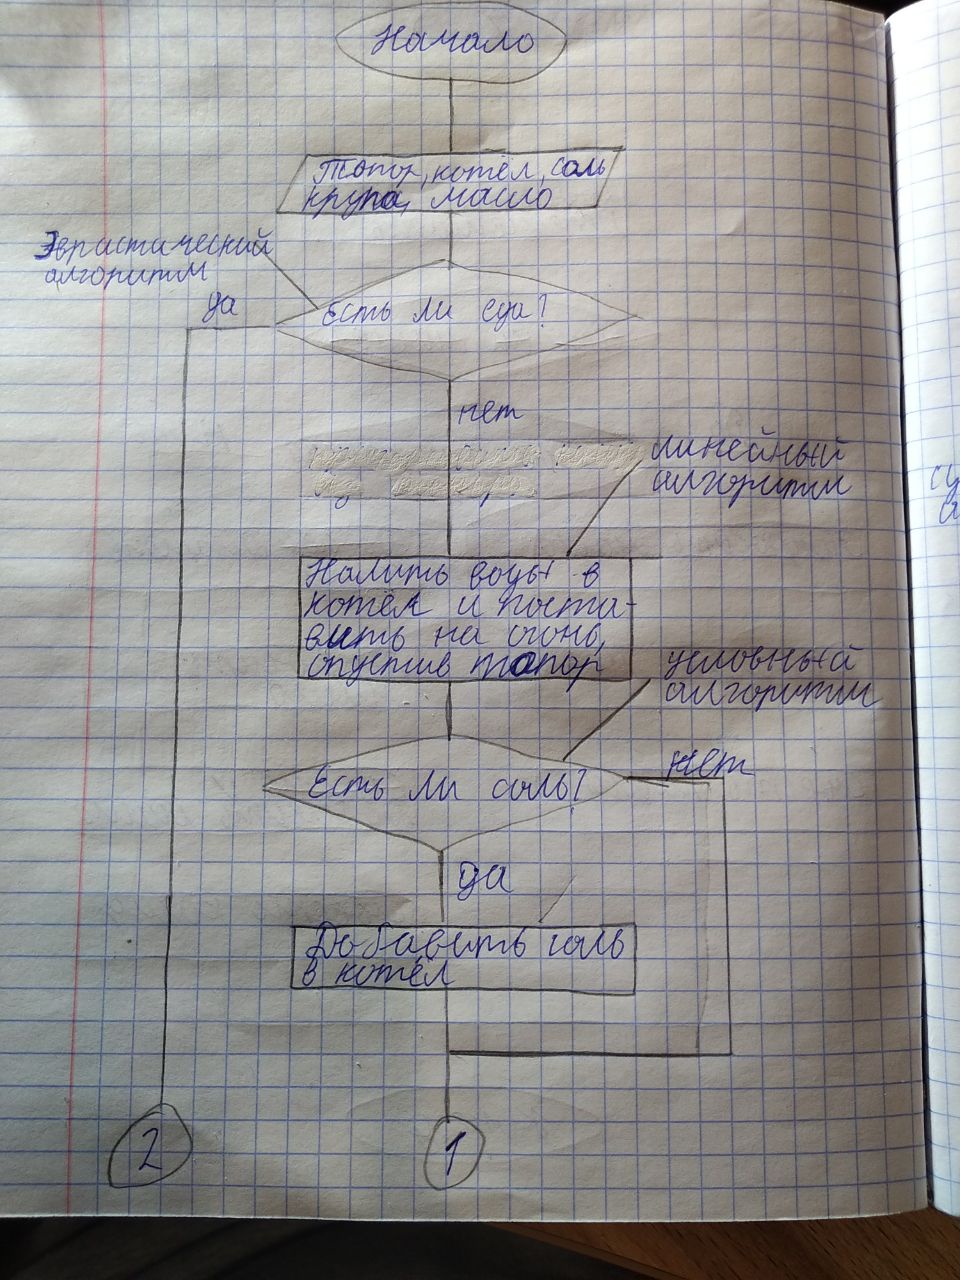 Начало
Топор, котёл, соль
крупа, масло
Эвристический
алгоритм
да
Есть ли еда?
нет
линейный
алгоритм
Налить воды в
котёл и поста-
вить на огонь,
опустив топор
условный
алгоритм
Есть ли соль?
нет
да
Добавить соль
в котёл
2
1